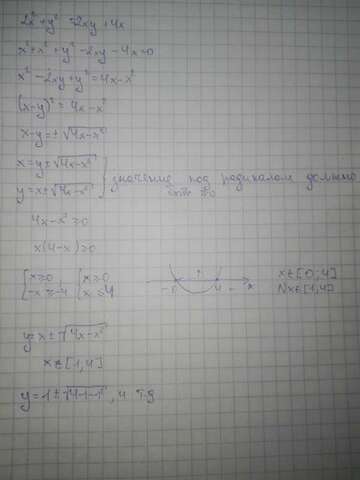 2x² + y² = 2xy + 4x
x² + x² + y² - 2xy - 4x = 0
x² - 2xy + y² = 4x - x²
(x-y)² = 4x - x²
x - y = ± √4x-x²
x = y ± √4x-x²
y = x ± √4x-x² } значение под радикалом должно
4x - x² ≥ 0
x(4-x) ≥ 0
{ x ≥ 0, { x ≥ 0
-x ≥ -4 x ≤ 4
x ∈ [0; 4]
N x ∈ [1, 4]
y = x ± √4x-x²
x ∈ [1, 4]
y = 1 ± √4·1-1², и т.д